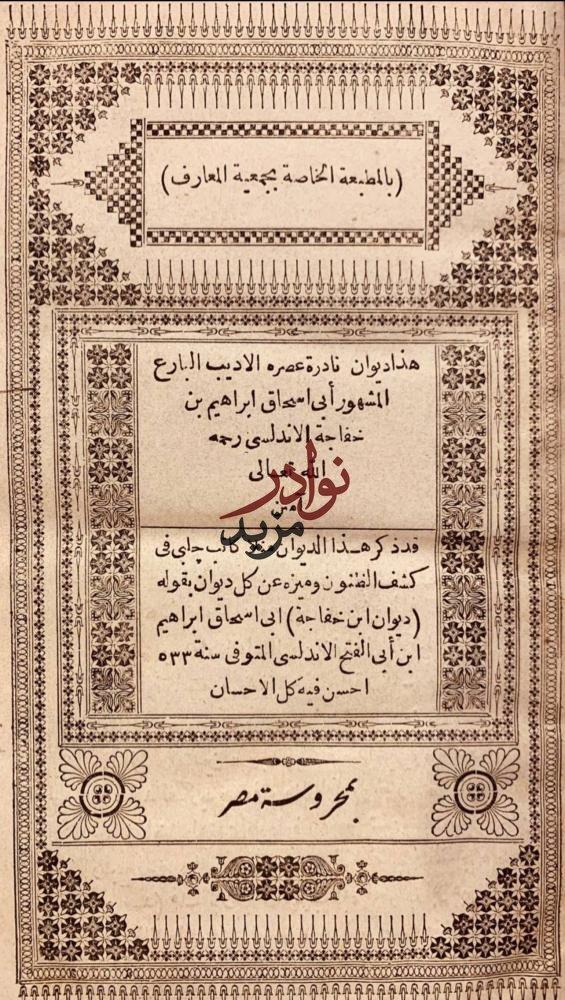 (بالمطبعة الخاصة بجمعية المعارف)
هذا ديوان نادرة عصره الاديب البارع
المشهور أبى اسحاق ابراهيم بن
خفاجة الاندلسى رحمه
الله تعالى
نوادر
مزيد
قد ذكر هذا الديوان كاتب چلبى فى
كشف الظنون وميزه عن كل ديوان بقوله
(ديوان ابن خفاجة) ابى اسحاق ابراهيم
ابن أبى الفتح الاندلسى المتوفى سنة ٥٣٣
احسن فيه كل الاحسان
بمحروسة مصر